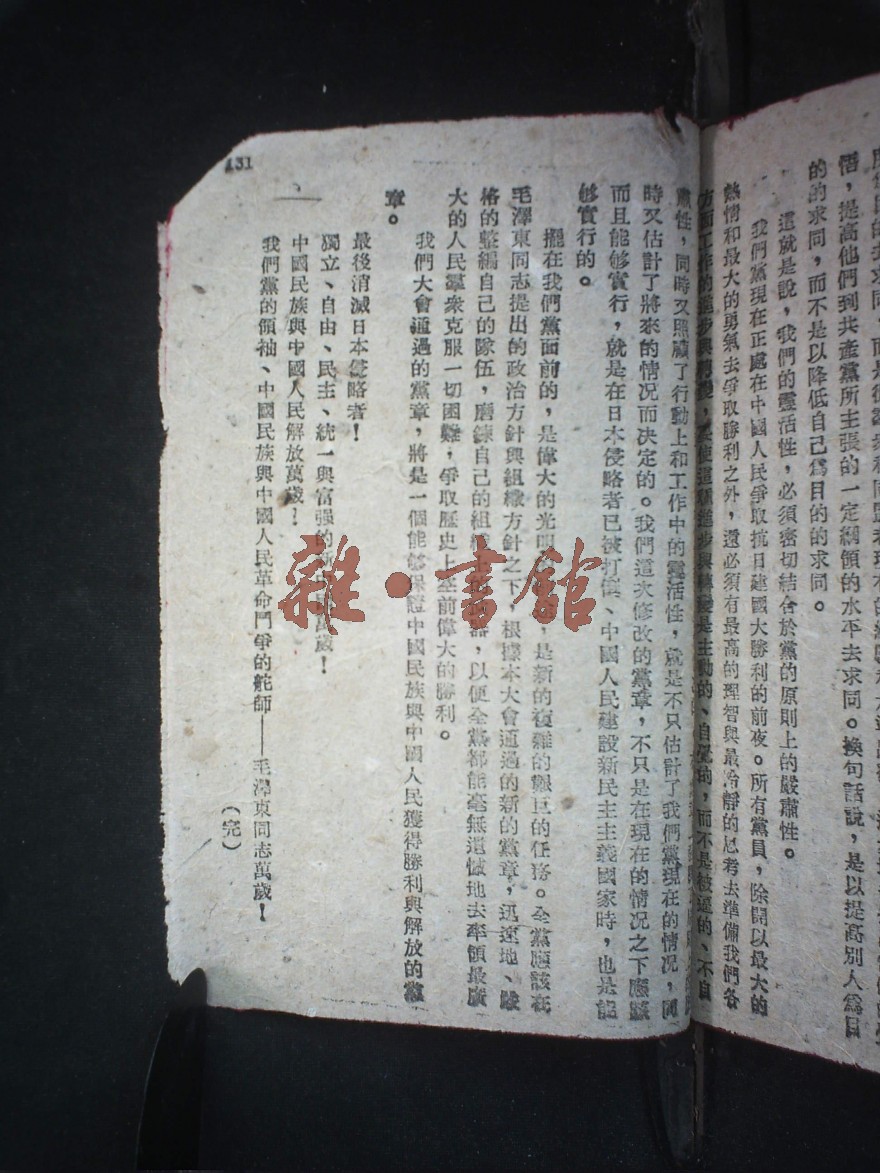 悟，提高他們到共產黨所主張的一定綱領的水平去求同。換句話說，是以提高別人為目
的的求同，而不是以降低自己為目的的求同。
這就是說，我們的靈活性，必須密切結合於黨的原則上的嚴肅性。
我們黨現在正處在中國人民爭取抗日建國大勝利的前夜。所有黨員，除開以最大的
熱情和最大的勇氣去爭取勝利之外，還必須有最高的理智與最冷靜的思考去準備我們各
方面工作的進步與轉變，要使這種進步與轉變是主動的、自覺的，而不是被逼的、不自
肅性，同時又照顧了行動上和工作中的靈活性，就是不只估計了我們黨現在的情況，同
時又估計了將來的情況而決定的。我們這次修改的黨章，不只是在現在的情況之下應該
而且能够實行，就是在日本侵略者已被打倒、中國人民建設新民主主義國家時，也是能
够實行的。
擺在我們黨面前的，是偉大的光明的，是新的複雜的艱巨的任務。全黨應該在
毛澤東同志提出的政治方針與組織方針之下，根據本大會通過的新的黨章，迅速地、嚴
格的整編自己的隊伍，磨鍊自己的組織上的武器，以便全黨都能毫無遺憾地去率領最廣
大的人民羣衆克服一切困難，爭取歷史上空前偉大的勝利。
我們大會通過的黨章，將是一個能够保證中國民族與中國人民獲得勝利與解放的黨
章。
最後消滅日本侵略者！
獨立、自由、民主、統一與富强的新中國萬歲！
中國民族與中國人民解放萬歲！
我們黨的領袖、中國民族與中國人民革命鬥爭的舵師——毛澤東同志萬歲！
（完）
131
雜·書館